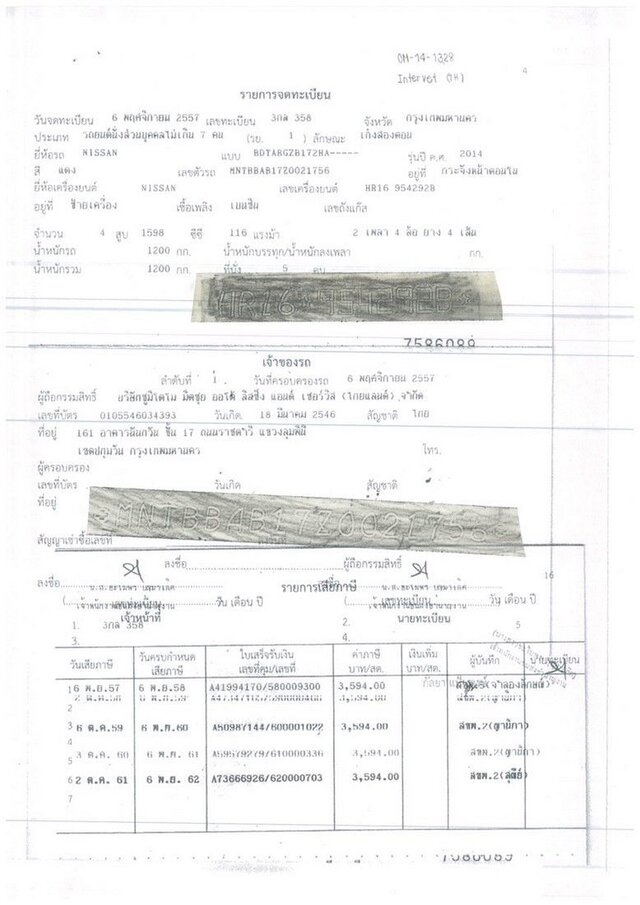 OM-14-1328
Intervet (TH)
4
รายการจดทะเบียน
วันจดทะเบียน 6 พฤศจิกายน 2557 เลขทะเบียน 3กล 358 จังหวัด กรุงเทพมหานคร
ประเภท รถยนต์นั่งส่วนบุคคลไม่เกิน 7 คน (รย. 1 ) ลักษณะ เก๋งสองตอน
ยี่ห้อรถ NISSAN แบบ BDTARGZB172HA----- รุ่นปี ค.ศ. 2014
สี แดง เลขตัวรถ MNTBBAB17Z0021756 อยู่ที่ กระจังหน้าตอนใน
ยี่ห้อเครื่องยนต์ NISSAN เลขเครื่องยนต์ HR16 954292B
อยู่ที่ ซ้ายเครื่อง เชื้อเพลิง เบนซิน เลขถังแก๊ส
จำนวน 4 สูบ 1598 ซีซี 116 แรงม้า 2 เพลา 4 ล้อ ยาง 4 เส้น
น้ำหนักรถ 1200 กก. น้ำหนักบรรทุก/น้ำหนักลงเพลา กก.
น้ำหนักรวม 1200 กก. ที่นั่ง 5 คน
7586089
เจ้าของรถ
ลำดับที่ 1 วันที่ครอบครองรถ 6 พฤศจิกายน 2557
ผู้ถือกรรมสิทธิ์ บริษัทซูมิโตโม มิตซุย ออโต้ ลิสซิ่ง แอนด์ เซอร์วิส (ไทยแลนด์) จำกัด
เลขที่บัตร 0105546034393 วันเกิด 18 มีนาคม 2546 สัญชาติ ไทย
ที่อยู่ 161 อาคารนันทวัน ชั้น 17 ถนนราชดำริ แขวงลุมพินี
เขตปทุมวัน กรุงเทพมหานคร โทร.
ผู้ครอบครอง
เลขที่บัตร วันเกิด สัญชาติ
ที่อยู่
MNTBBAB17Z0021756
สัญญาเช่าซื้อเลขที่
ลงชื่อ ผู้ถือกรรมสิทธิ์
16
ลงชื่อ รายการเสียภาษี
วัน เดือน ปี เลขทะเบียน วัน เดือน ปี
เจ้าหน้าที่ นายทะเบียน
1. 3กล 358 2. 5
3. 4.
วันเสียภาษี วันครบกำหนดเสียภาษี ใบเสร็จรับเงิน เล่มที่คุม/เลขที่ ค่าภาษี บาท/สต. เงินเพิ่ม บาท/สต. ผู้บันทึก นายทะเบียน
1 6 พ.ย.57 6 พ.ย.58 A41994170/580009300 3,594.00
2
3 6 ต.ค.59 6 พ.ย.60 A50987144/600001022 3,594.00 สขพ.2(ญานิกา)
4
5 3 ต.ค. 60 6 พ.ย. 61 A59579279/610000336 3,594.00 สขพ.2(ญานิกา)
6 2 ต.ค. 61 6 พ.ย. 62 A73666926/620000703 3,594.00 สขพ.2(สุทีย์)
7
7586089